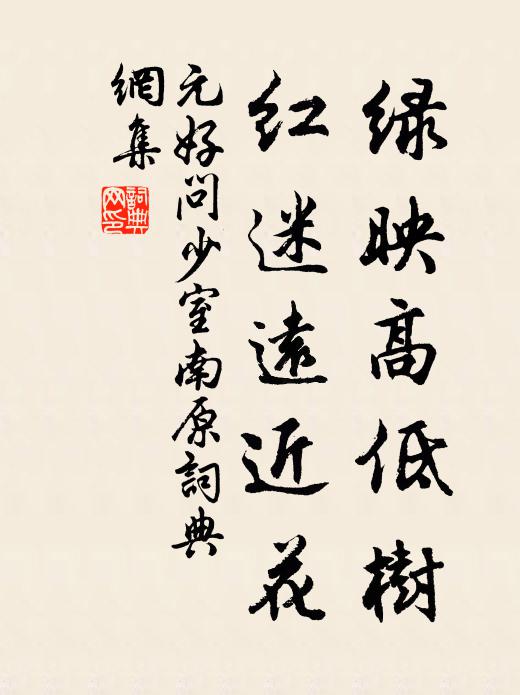 绿映高低樹
红迷遠近花
元好问少室南原詞典
網集
詞典
网印